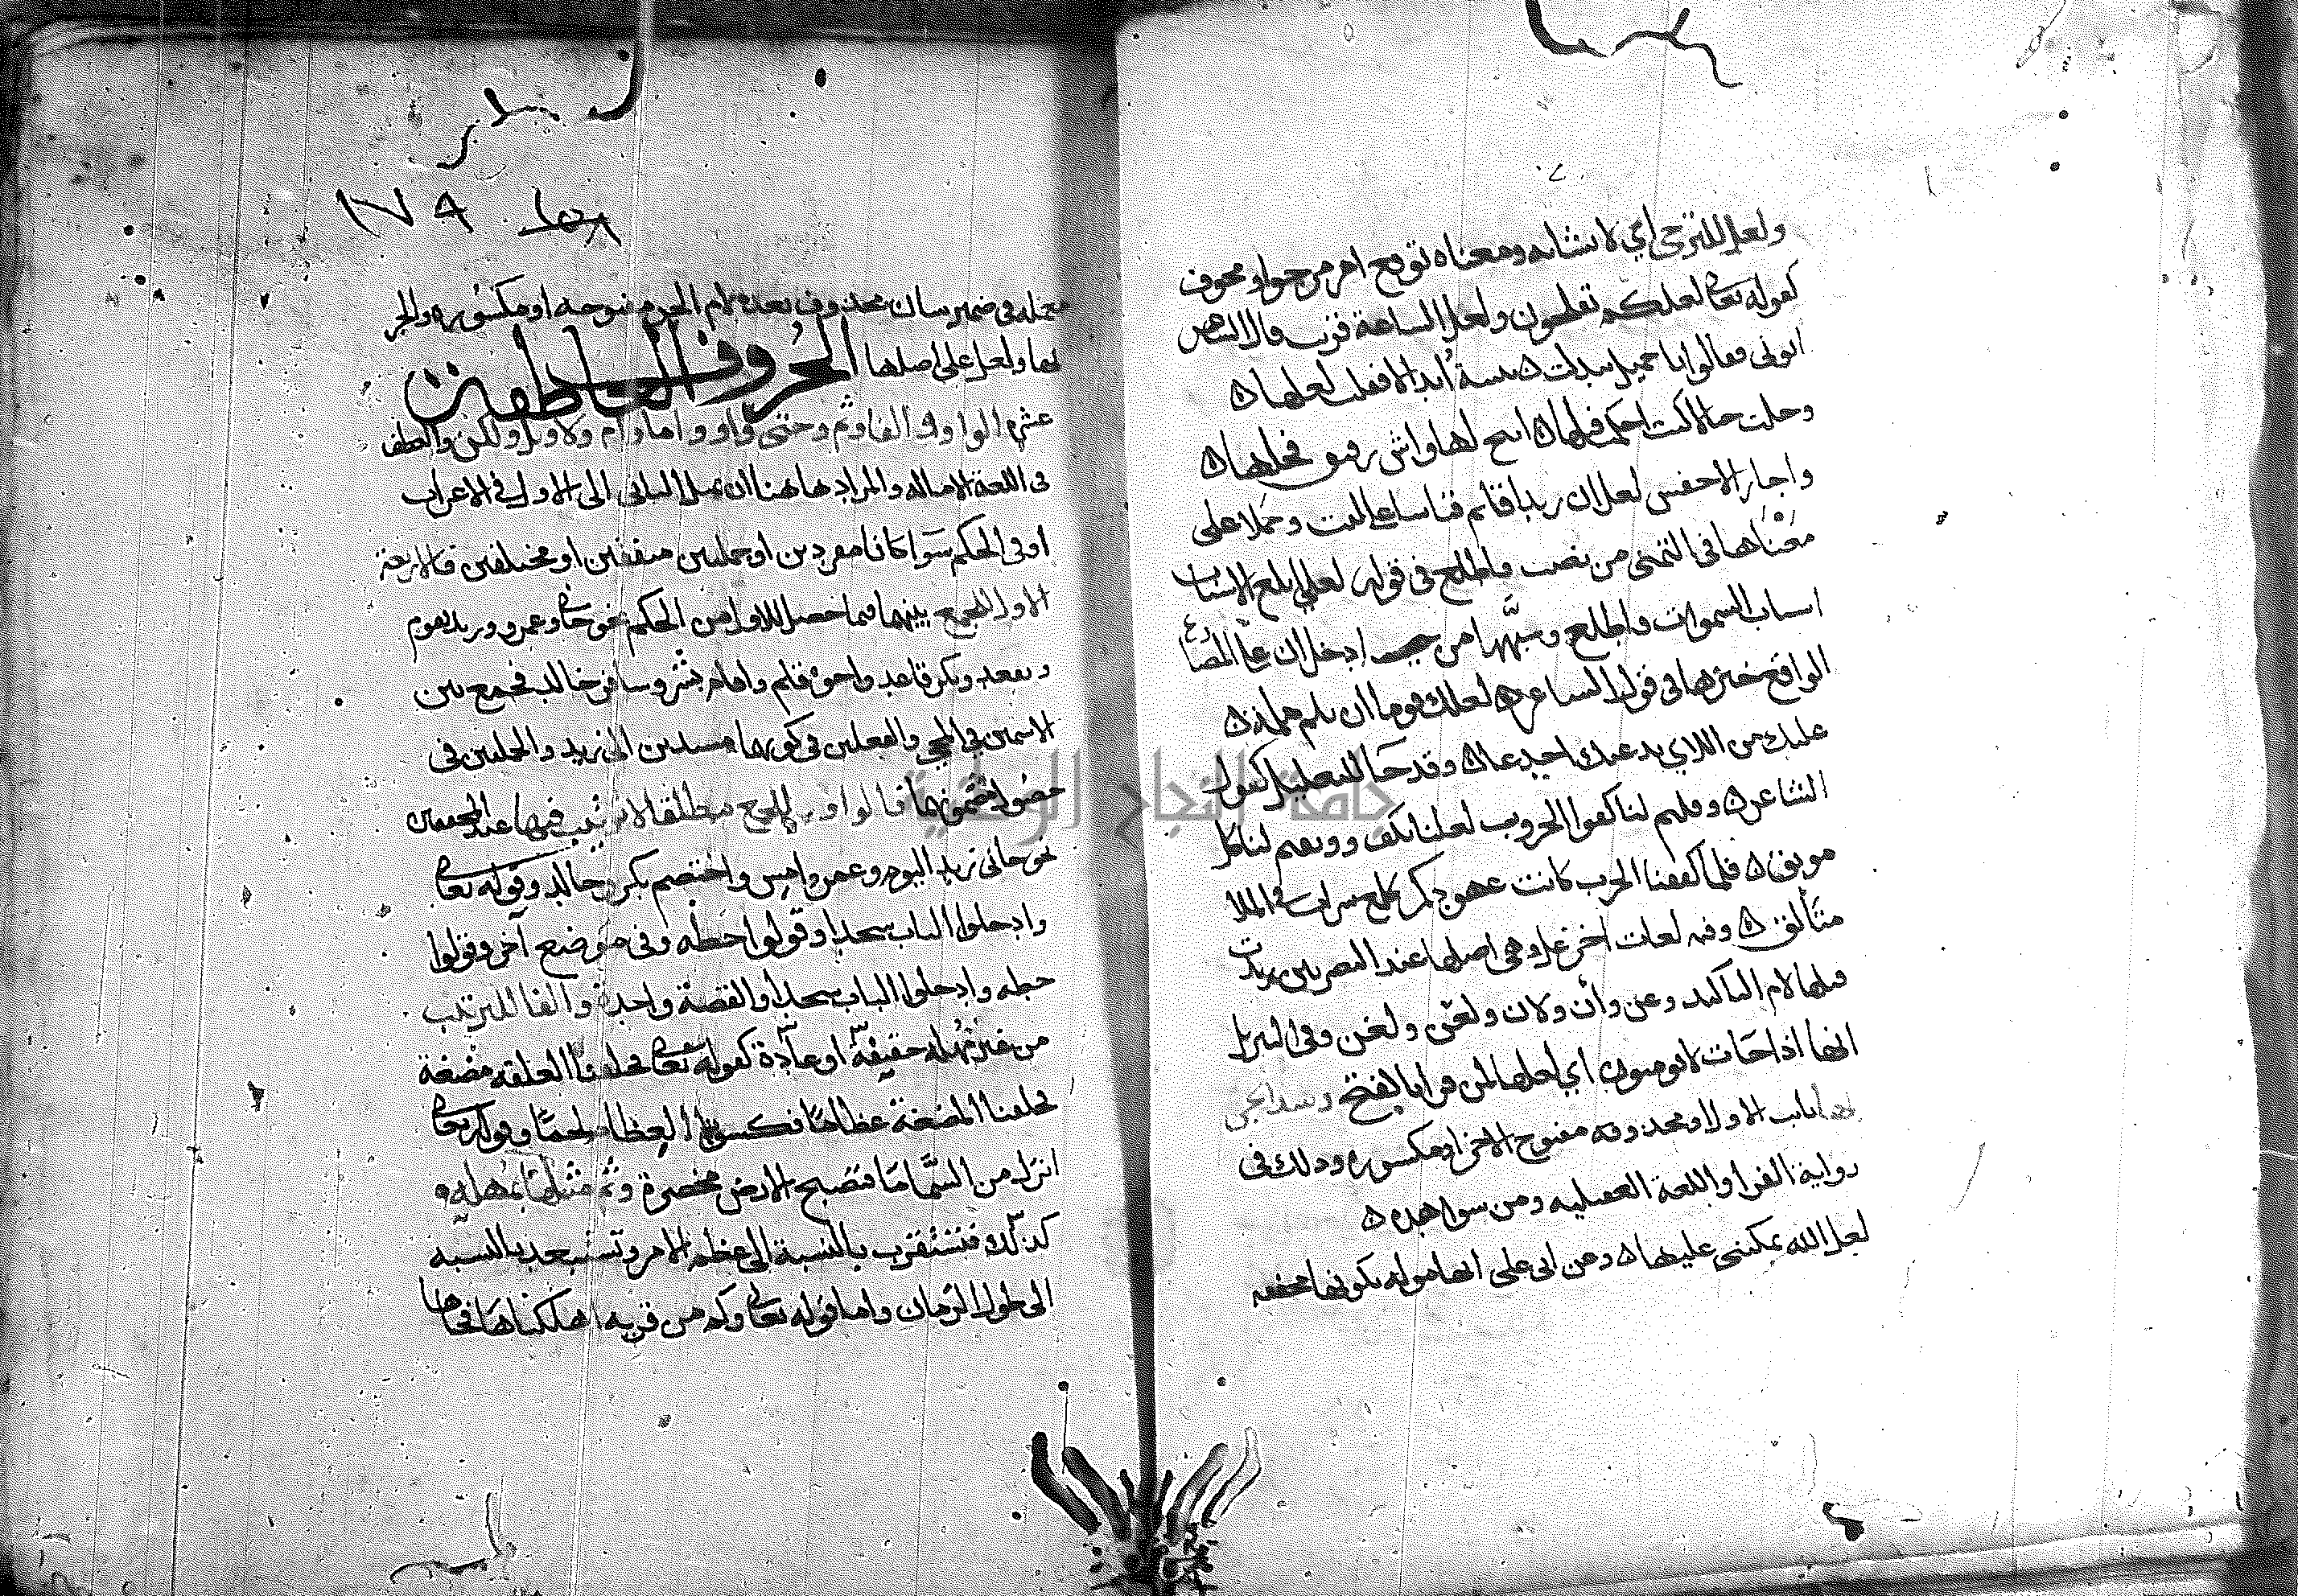 ولعل للترجي اي لانشايه ومعناه توقع امر مرجو او مخوف
كقوله تعالى لعلكم تفلحون ولعل الساعة قريب قال الشاعر
اتوني فقالوا يا جميل تبدلت ه بثينة أبدالا فقلت لعلها ه
وحلت حبالا كنت احكمت فتلها ه اتيح لها واش رفيق فحلها ه
واجاز الاخفش لعل ان زيدا قائم قياسا على ليت وحملا على
معناها في التمني من نصب فاطلع في قوله لعلي ابلغ الاسباب
اسباب السموات فاطلع وشبهها من حيث ادخل ان على المضارع
الواقع خبرها في قول الشاعر ه لعلك يوما ان تلم ملمة ه
عليك من اللاي يدعنك اجدعا ه وقد جا للتعليل كقول
الشاعر ه وقلتم لنا كفوا الحروب لعلنا نكف ووثقتم لنا كل
موثق ه فلما كففنا الحرب كانت عهودكم كلمع سراب في الملا
متألق ه وفيه لغات اخر عل وهي اصلها عند البصريين زيدت
قبلها لام التاكيد وعن وأن ولان ولعن ولغن وفي التنزيل
انها اذا جات لا يومنون اي لعلها لمن قرا بالفتح
ثابت الاول او محذوفه مفتوح الاخر او مكسوره وذلك في
رواية الفرا واللغة العقيلية ومن شواهده ه
لعل الله يمكنني عليها ه ومن ابى على انها موله بكونها مخففه
١٧٩
معمله في ضمير شان محذوف بعده لام الجر مفتوحه او مكسوره والجر
بها ولعل على اصلها الحروف العاطفة
عشرة الواو والفا وثم وحتى واو واما وام ولا وبل ولكن والعطف
في اللغة الامالة والمراد هاهنا ان يميل الثاني الى الاول في الاعراب
او في الحكم سوا كانا مفردين او جملتين متفقين او مختلفين فالاربعة
الاول للجمع بينهما فيما حصل للاول من الحكم نحو جا وعمرو وزيد يقوم
ويقعد وبكر قاعد واخوه قائم واقام بشر وسافر خالد فجمع بين
الاسمين في المجي والفعلين في كونهما مسندين الى زيد والجملتين في
حصول مضمونهما فالواو للجمع مطلقا لا ترتيب فيها عند المحققين
نحو جاني زيد اليوم وعمرو امس واختصم بكر وخالد وقوله تعالى
وادخلوا الباب سجدا وقولوا حطه وفي موضع آخر وقولوا
حطه وادخلوا الباب سجدا والقصة واحدة والفا للترتيب
من غير مهله حقيقة او عادة كقوله تعالى فخلقنا العلقه مضغة
فخلقنا المضغة عظاما فكسونا العظام لحما وقوله تعالى
انزل من السما ما فتصبح الارض مخضرة وثم مثلها بمهله و
كذلك فتستقرب بالنسبة الى عظم الامر وتستبعد بالنسبة
الى طول الزمان واما قوله تعالى وكم من قرية اهلكناها فجاها
جامعة النجاح الوطنية